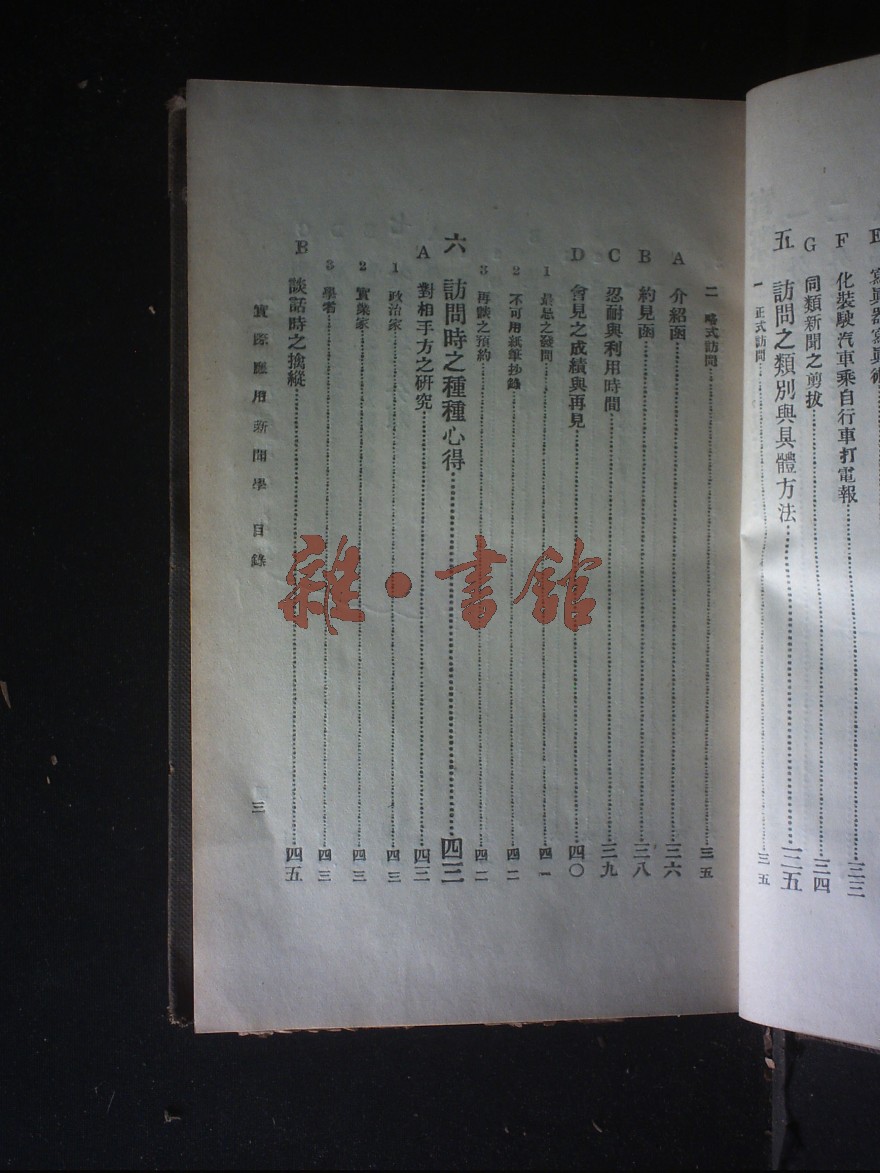 F 化裝駛汽車乘自行車打電報……三三
G 同類新聞之剪拔……三四
五 訪問之類別與具體方法……三五
一 正式訪問……三五
二 略式訪問……三五
A 介紹函……三六
B 約見函……三八
C 忍耐與利用時間……三九
D 會見之成績與再見……四〇
1 最忌之發問……四一
2 不可用紙筆抄錄……四二
3 再談之預約……四二
六 訪問時之種種心得……四三
A 對相手方之研究……四三
1 政治家……四三
2 實業家……四三
3 學者……四三
B 談話時之擒縱……四五
實際應用新聞學 目錄 三
雜·書館